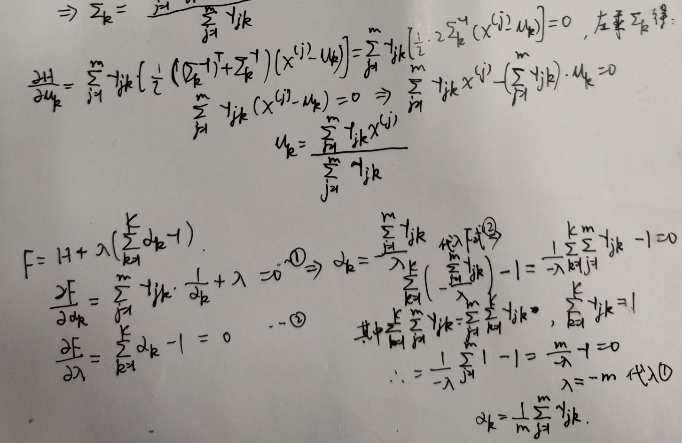 ⇒ Σₖ = / Σⱼ₌₁ᵐ γⱼₖ
∂H/∂uₖ = Σⱼ₌₁ᵐ γⱼₖ [½ ((Σₖ⁻¹)ᵀ + Σₖ⁻¹)(x⁽ʲ⁾ − uₖ)] = Σⱼ₌₁ᵐ γⱼₖ [½ · 2Σₖ⁻¹ (x⁽ʲ⁾ − uₖ)] = 0 , 左乘 Σₖ 得:
Σⱼ₌₁ᵐ γⱼₖ (x⁽ʲ⁾ − uₖ) = 0 ⇒ Σⱼ₌₁ᵐ γⱼₖ x⁽ʲ⁾ − (Σⱼ₌₁ᵐ γⱼₖ) · uₖ = 0
uₖ = Σⱼ₌₁ᵐ γⱼₖ x⁽ʲ⁾ / Σⱼ₌₁ᵐ γⱼₖ
F = H + λ(Σₖ₌₁ᴷ αₖ − 1).
∂F/∂αₖ = Σⱼ₌₁ᵐ γⱼₖ · 1/αₖ + λ = 0 ··· ① ⇒ αₖ = − Σⱼ₌₁ᵐ γⱼₖ / λ 代入F式② ⇒
∂F/∂λ = Σₖ₌₁ᴷ αₖ − 1 = 0 ··· ②
Σₖ₌₁ᴷ (− Σⱼ₌₁ᵐ γⱼₖ / λ) − 1 = 1/−λ Σₖ₌₁ᴷ Σⱼ₌₁ᵐ γⱼₖ − 1 = 0
其中 Σₖ₌₁ᴷ Σⱼ₌₁ᵐ γⱼₖ = Σⱼ₌₁ᵐ Σₖ₌₁ᴷ γⱼₖ , Σₖ₌₁ᴷ γⱼₖ = 1
∴ = 1/−λ Σⱼ₌₁ᵐ 1 − 1 = m/−λ − 1 = 0
λ = −m 代入①
αₖ = 1/m Σⱼ₌₁ᵐ γⱼₖ.